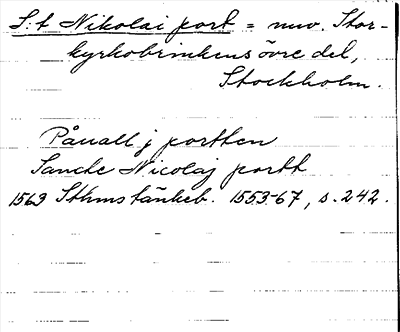 S:t Nikolai port = nuv. Stor-
kyrkobrinkens övre del,
Stockholm.
Påuall j portten
Sancte Nicolaj portt
1563 Sthms tänkeb. 1553-67, s. 242.